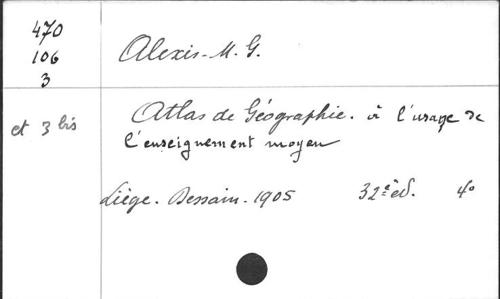 470
106
3
et 3 bis
Alexis-M. G.
Atlas de Géographie. à l'usage de
l'enseignement moyen
Liège. Dessain. 1905 32e éd. 4o